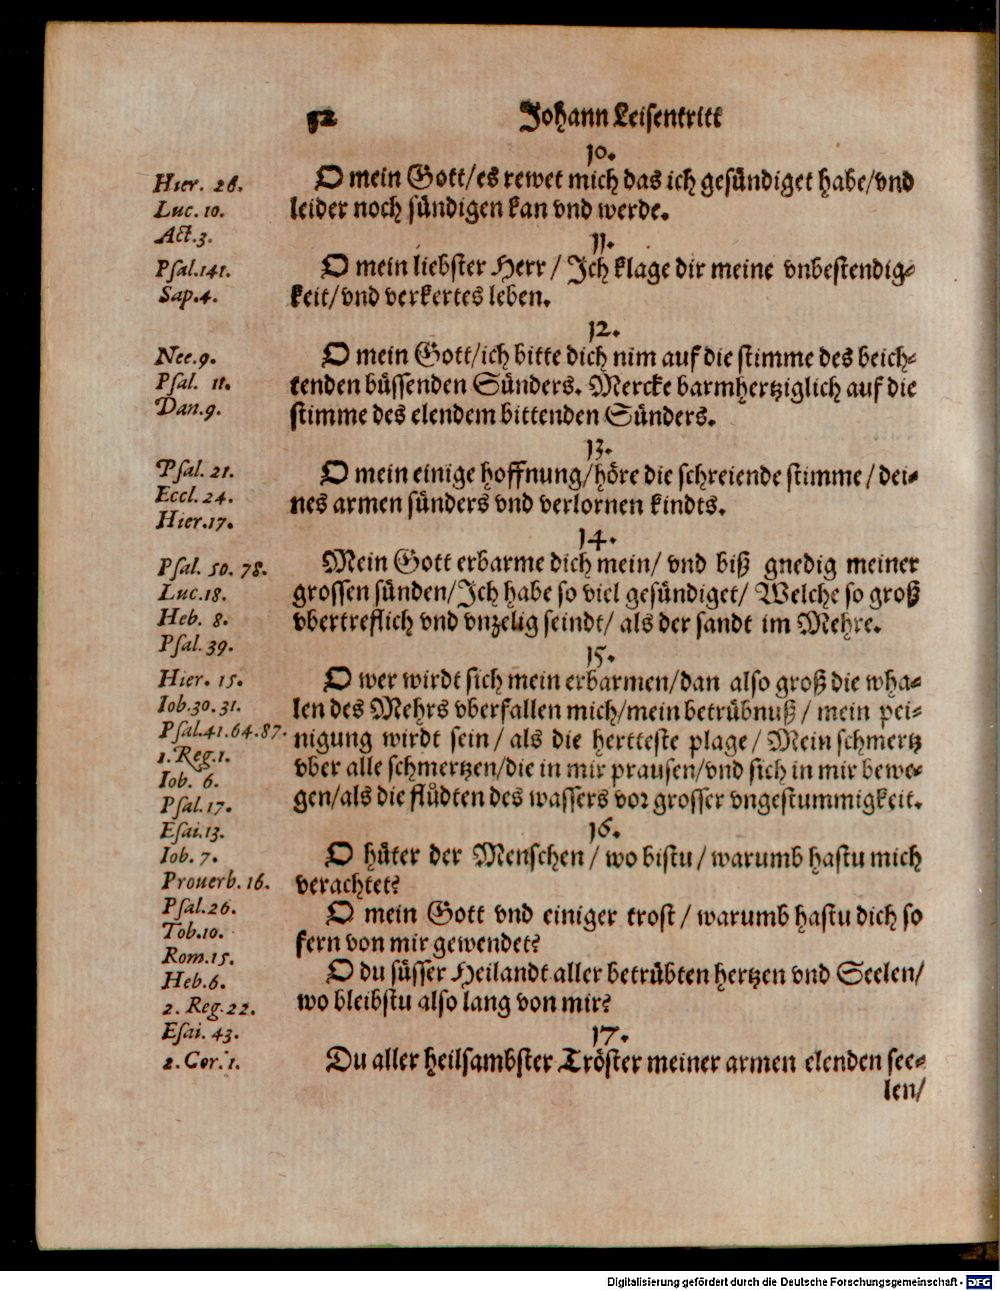 52 Johann Leisentritt
10.
Hier. 26. O mein Gott/es rewet mich das ich gesündiget habe/vnd
Luc. 10. leider noch sündigen kan vnd werde.
Act.3.
11.
Psal.141. O mein liebster Herr / Ich klage dir meine vnbestendig-
Sap.4. keit/vnd verkertes leben.
12.
Nee.9. O mein Gott/ich bitte dich nim auf die stimme des beich-
Psal. 11. tenden büssenden Sünders. Mercke barmhertziglich auf die
Dan.9. stimme des elendem bittenden Sünders.
13.
Psal. 21. O mein einige hoffnung/höre die schreiende stimme / dei-
Eccl. 24. nes armen sünders vnd verlornen kindts.
Hier.17.
14.
Psal. 50. 78. Mein Gott erbarme dich mein/ vnd biß gnedig meiner
Luc.18. grossen sünden/Ich habe so viel gesündiget/ Welche so groß
Heb. 8. vbertreflich vnd vnzelig seindt/ als der sandt im Mehre.
Psal. 39.
15.
Hier. 15. O wer wirdt sich mein erbarmen/dan also groß die wha-
Iob.30. 31. len des Mehrs vberfallen mich/mein betrübnuß / mein pei-
Psal.41.64.87. nigung wirdt sein / als die hertteste plage / Mein schmertz
1. Reg.1. vber alle schmertzen/die in mir prausen/vnd sich in mir bewe-
Iob. 6.
Psal.17. gen/als die flüdten des wassers vor grosser vngestummigkeit.
Esai.13.
16.
Iob. 7. O hüter der Menschen / wo bistu / warumb hastu mich
Prouerb. 16. verachtet?
Psal.26. O mein Gott vnd einiger trost / warumb hastu dich so
Tob.10. fern von mir gewendet?
Rom.15.
Heb.6. O du süsser Heilandt aller betrübten hertzen vnd Seelen/
2. Reg.22. wo bleibstu also lang von mir?
Esai. 43.
17.
2. Cor. 1. Du aller heilsambster Tröster meiner armen elenden see-
len/
Digitalisierung gefördert durch die Deutsche Forschungsgemeinschaft - DFG